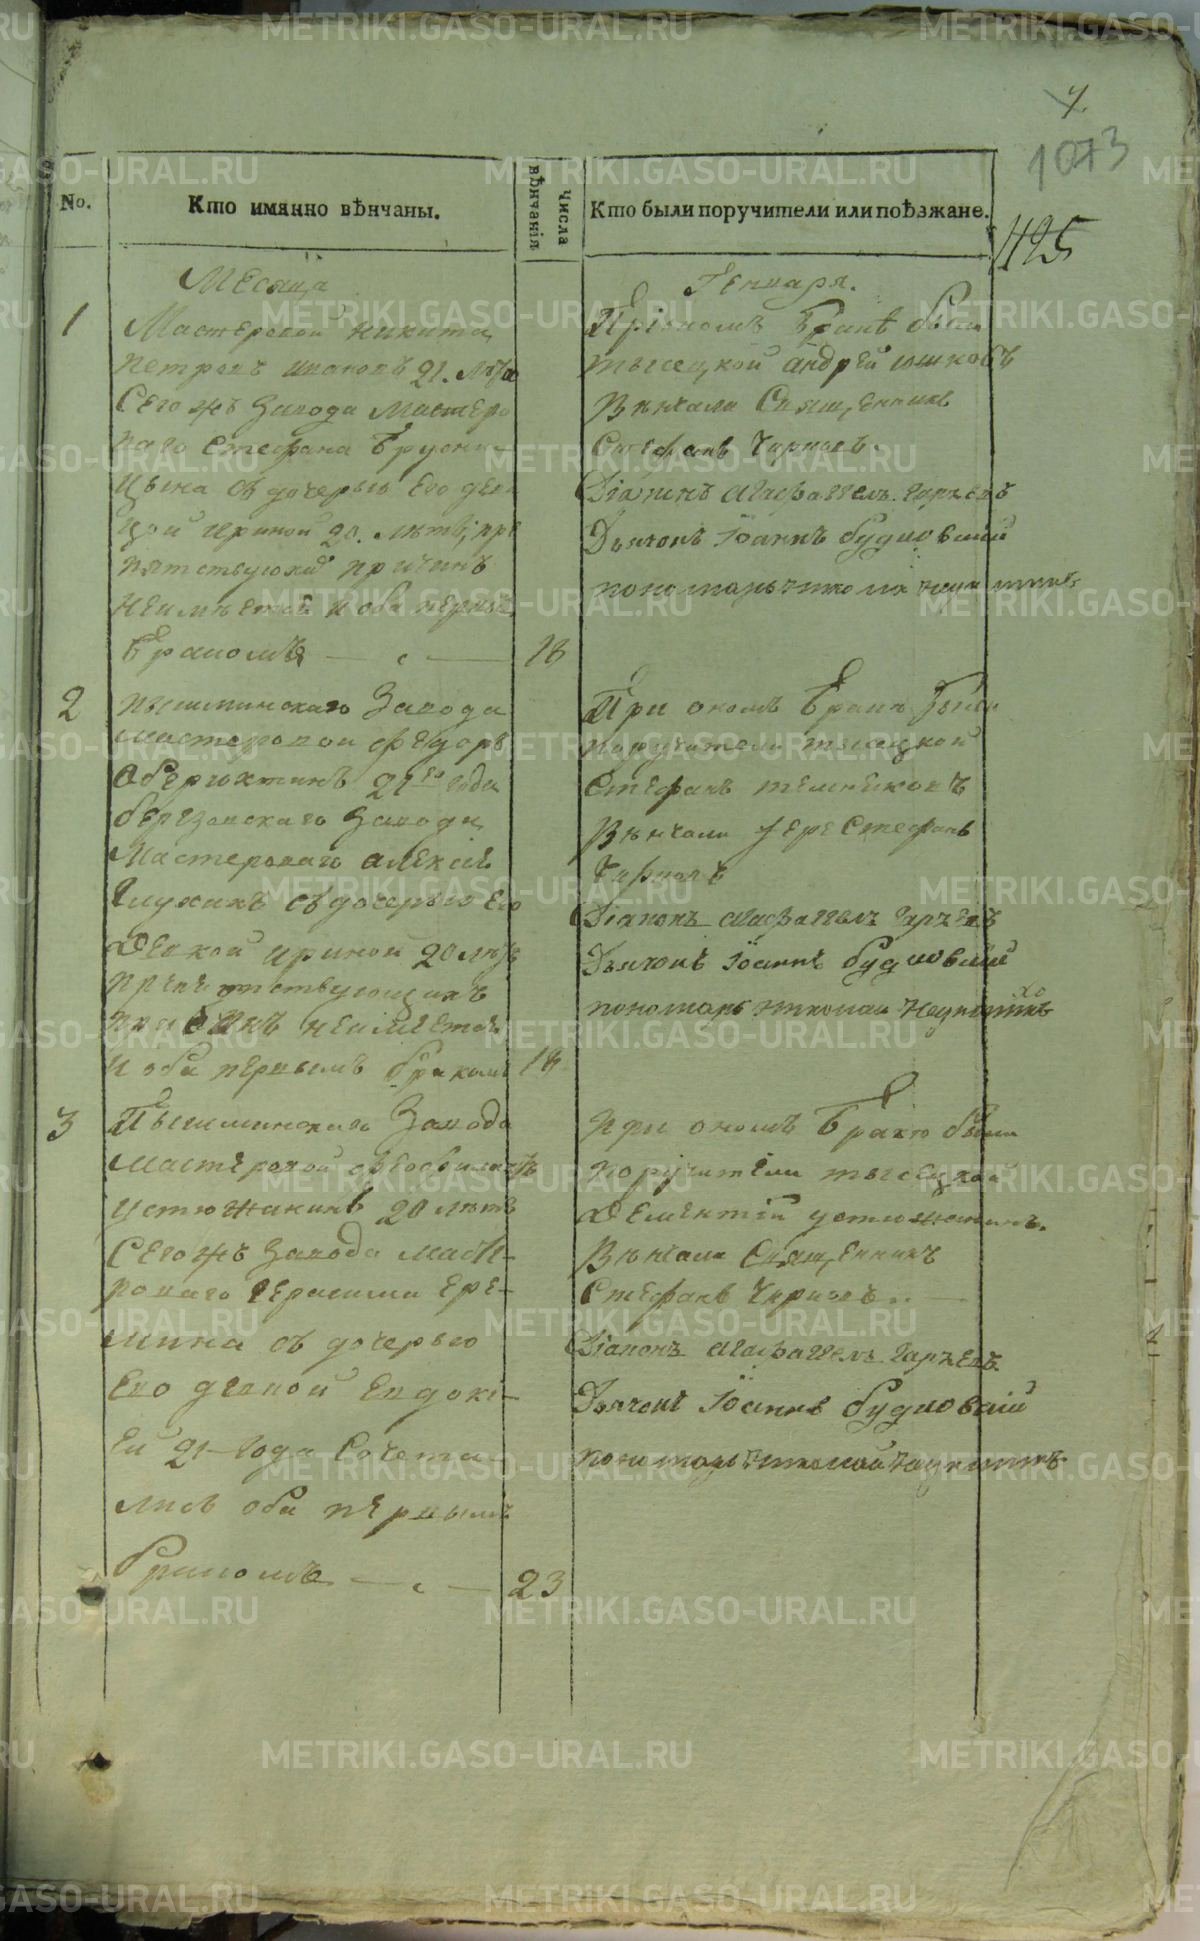 1073
425
No.
Кто имянно вѣнчаны.
Числа вѣнчанія
Кто были поручители или поѣзжане.
Месяца
Генваря.
1
Мастеровой никита
петровъ 21. лѣта
Сегожъ Завода Мастеро
ваго Стефана Брусни-
цына съ дочерью Его дев
цой ириной 20. лѣтъ, пре
пятствующихъ причинъ
неимѣется и оба первы
Бракомъ
18
При ономъ Бракѣ были
тысецкой андрей
Вѣнчали Священникъ
Стефанъ Чирковъ.
Діаконъ
Дьячокъ Іоаннъ будиовскій
пономарь николай
2
пышминскаго Завода
Мастеровой федоръ
Обертюхтинъ 21 го года
березовскаго Завода
Мастероваго алексія
Глухихъ съ дочерью Его
девкой ириной 20 лѣтъ
препятствующихъ
причинъ неимеется
и оба первымъ бракомъ
18
При ономъ Браке были
поручители тысецкой
Стефанъ
Вѣнчали Iерей Стефанъ
Чирковъ
Діаконъ
Дьячокъ Іоаннъ будиовскій
пономарь николай
3
Пышминскаго Завода
Мастеровой феофилактъ
устюжанинъ 20 лѣтъ
Сегожъ Завода масте-
роваго Герасима Ере-
мина съ дочерью
Его девкой Евдокі-
ей 21 года Сочета-
лись оба первымъ
Бракомъ
23
При ономъ Бракѣ были
поручители тысецкой
Дементій устюжанинъ.
Вѣнчали Священникъ
Стефанъ Чирковъ
Діаконъ
Дьячокъ Іоаннъ будиовскій
пономарь николай
METRIKI.GASO-URAL.RU